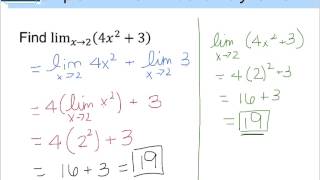 Find lim x→2 (4x² + 3)
= lim x→2 4x² + lim x→2 3
= 4(lim x→2 x²) + 3
= 4(2²) + 3
= 16 + 3 = 19
lim x→2 (4x² + 3)
= 4(2)² + 3
= 16 + 3
= 19